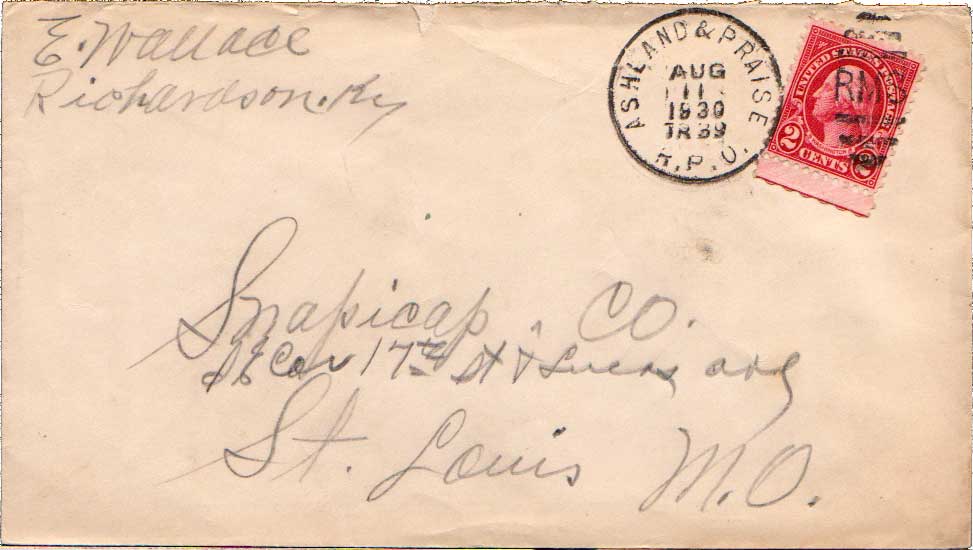 E. Wallace
Richardson. Ky
ASHLAND & PRAISE
AUG
11
1930
TR 39
R.P.O.
UNITED STATES POSTAGE
RMS
2 CENTS 2
Snapicap. CO.
Cor 17th St & ave
St. Louis M.O.